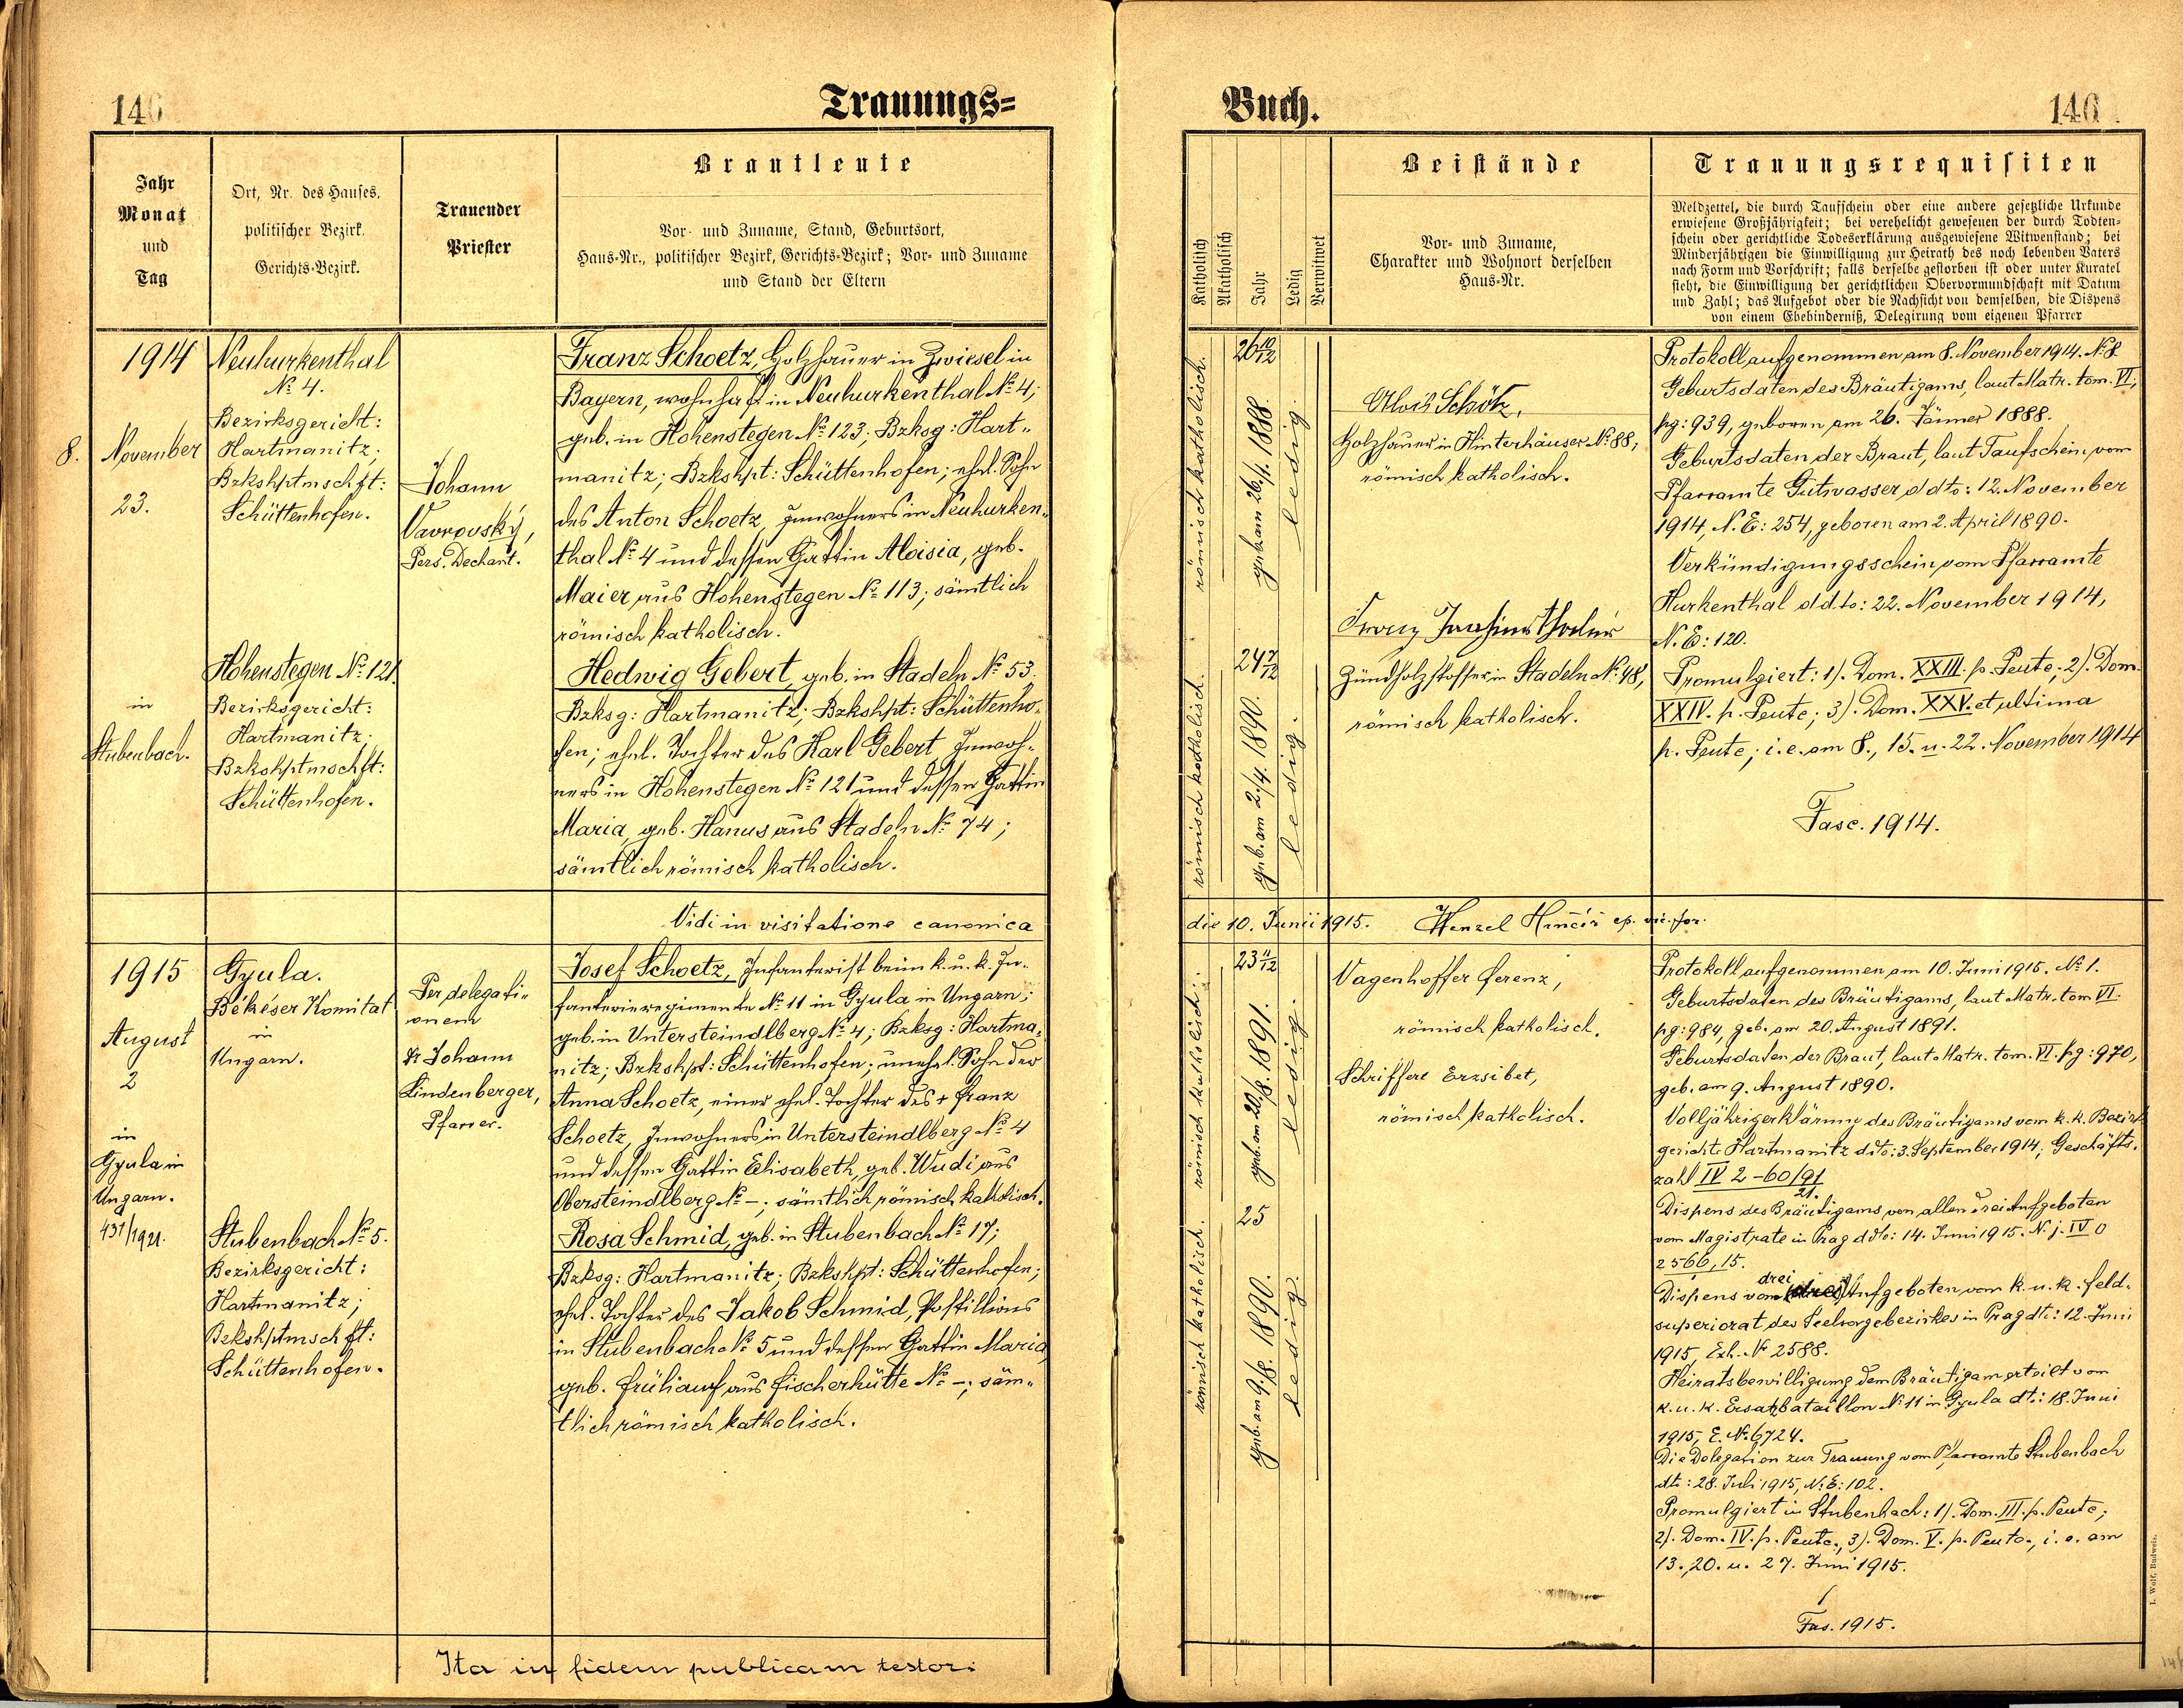 140
Trauungs=
Jahr
Monat
und
Tag
Ort, Nr. des Hauses,
politischer Bezirk.
Gerichts-Bezirk.
Trauender
Priester
Brautleute
Vor- und Zuname, Stand, Geburtsort,
Haus-Nr., politischer Bezirk, Gerichts-Bezirk; Vor- und Zuname
und Stand der Eltern
1914
8. November
23.
in
Stubenbach.
Neuhurkenthal
№ 4.
Bezirksgericht:
Hartmanitz;
Bzkshptmschft:
Schüttenhofen.
Hohenstegen № 121.
Bezirksgericht:
Hartmanitz;
Bzkshptmschft:
Schüttenhofen.
Johann
Vavrovský,
Pers. Dechant.
Franz Schoetz, Holzhauer in Zwiesel in
Bayern, wohnhaft in Neuhurkenthal № 4;
geb. in Hohenstegen № 123; Bzksg: Hart-
manitz; Bzkshpt: Schüttenhofen; ehel. Sohn
des Anton Schoetz, Inwohners in Neuhurken-
thal № 4 und dessen Gattin Aloisia, geb.
Maier aus Hohenstegen № 113; sämtlich
römisch katholisch.
Hedwig Gebert, geb. in Stadeln № 53.
Bzksg: Hartmanitz; Bzkshpt: Schüttenho-
fen; ehel. Tochter des Karl Gebert, Inwoh-
ners in Hohenstegen № 121 und dessen Gattin
Maria, geb. Hanus aus Stadeln № 74;
sämtlich römisch katholisch.
Vidi in visitatione canonica
1915
August
2
in
Gyula in
Ungarn.
431/1921.
Gyula.
Békéser Komitat
in
Ungarn.
Stubenbach № 5.
Bezirksgericht:
Hartmanitz;
Bzkshptmschft:
Schüttenhofen.
Per delegati-
onem
Dr Johann
Lindenberger,
Pfarrer.
Josef Schoetz, Infanterist beim k. u. k. In-
fanterieregimente № 11 in Gyula in Ungarn;
geb. in Untersteindlberg № 4; Bzksg: Hartma-
nitz; Bzkshpt: Schüttenhofen; unehel. Sohn der
Anna Schoetz, einer ehel. Tochter des + Franz
Schoetz, Inwohners in Untersteindlberg № 4
und dessen Gattin Elisabeth, geb. Wudi aus
Obersteindlberg № –; sämtlich römisch katholisch.
Rosa Schmid, geb. in Stubenbach № 17;
Bzksg: Hartmanitz; Bzkshpt: Schüttenhofen;
ehel. Tochter des Jakob Schmid, Postillions
in Stubenbach № 5 und dessen Gattin Maria,
geb. Frühauf aus Fischerhütte № –; säm-
tlich römisch katholisch.
Ita in fidem publicam testor:
Buch.
140
Katholisch
Akatholisch
Jahr
Ledig
Verwitwet
Beistände
Vor- und Zuname,
Charakter und Wohnort derselben
Haus-Nr.
Trauungsrequisiten
Meldzettel, die durch Taufschein oder eine andere gesetzliche Urkunde
erwiesene Großjährigkeit; bei verehelicht gewesenen der durch Todten-
schein oder gerichtliche Todeserklärung ausgewiesene Witwenstand; bei
Minderjährigen die Einwilligung zur Heirath des noch lebenden Vaters
nach Form und Vorschrift; falls derselbe gestorben ist oder unter Kuratel
steht, die Einwilligung der gerichtlichen Obervormundschaft mit Datum
und Zahl; das Aufgebot oder die Nachsicht von demselben, die Dispens
von einem Ehehinderniß, Delegirung vom eigenen Pfarrer
römisch katholisch.
26 10/12
geb. am 26/1. 1888.
ledig.
römisch katholisch.
24 7/12
geb. am 2./4. 1890.
ledig.
Alois Schötz,
Holzhauer in Hinterhäuser № 88;
römisch katholisch.
Franz
Zündholzstoffer in Stadeln № 48,
römisch katholisch.
Protokoll aufgenommen am 8. November 1914. № 8.
Geburtsdaten des Bräutigams, laut Matr. tom. VI,
pg: 939, geboren am 26. Jänner 1888.
Geburtsdaten der Braut, laut Taufschein vom
Pfarramte Gutwasser ddto: 12. November
1914, N. E: 254, geboren am 2. April 1890.
Verkündigungsschein vom Pfarramte
Hurkenthal ddto: 22. November 1914,
N. E: 120.
Promulgiert: 1). Dom. XXIII. p. Pente; 2). Dom.
XXIV. p. Pente; 3). Dom. XXV. et ultima
p. Pente; i. e. am 8., 15. u. 22. November 1914
Fasc. 1914.
die 10. Junii 1915. Wenzel ep. vic. for.
römisch katholisch.
23 11/12
geb. am 20/8. 1891.
ledig.
römisch katholisch.
25
geb. am 9./8. 1890.
ledig.
Vagenhoffer Ferenz,
römisch katholisch.
Schriffert Erzsibet,
römisch katholisch.
Protokoll aufgenommen am 10. Juni 1915. № 1.
Geburtsdaten des Bräutigams, laut Matr. tom VI.
pg: 984, geb. am 20. August 1891.
Geburtsdaten der Braut, laut Matr. tom. VI. pg: 970,
geb. am 9. August 1890.
Volljährigerklärung des Bräutigams vom k. k. Bezirks
gerichte Hartmanitz ddo: 3. September 1914, Geschäfts-
zahl IV 2 – 60/91
21.
Dispens des Bräutigams von allen drei Aufgeboten
vom Magistrate in Prag ddo: 14. Juni 1915. N. j. IV 0
2566, 15.
drei
Dispens von Aufgeboten vom k. u. k. Feld-
superiorat des Seelsorgebezirkes in Prag dt: 12. Juni
1915, Exh. № 2588.
Heiratsbewilligung dem Bräutigam erteilt vom
k. u. k. Ersatzbataillon № 11 in Gyula dt: 18. Juni
1915, E. № 6724.
Die Delegation zur Trauung vom Pfarramte Stubenbach
dto: 28. Juli 1915, N. E: 102.
Promulgiert in Stubenbach: 1). Dom. III. p. Pente;
2). Dom. IV. p. Pente., 3). Dom. V. p. Pente., i. e. am
13., 20. u. 27. Juni 1915.
Fas. 1915.
I. Wolf, Budweis.